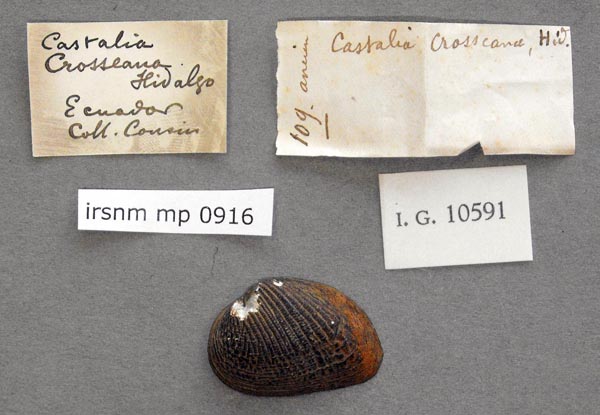 Castalia
Crosseana
Hidalgo
Ecuador
Coll. Cousin
109.
Castalia Crosseana, Hid.
irsnm mp 0916
I. G. 10591